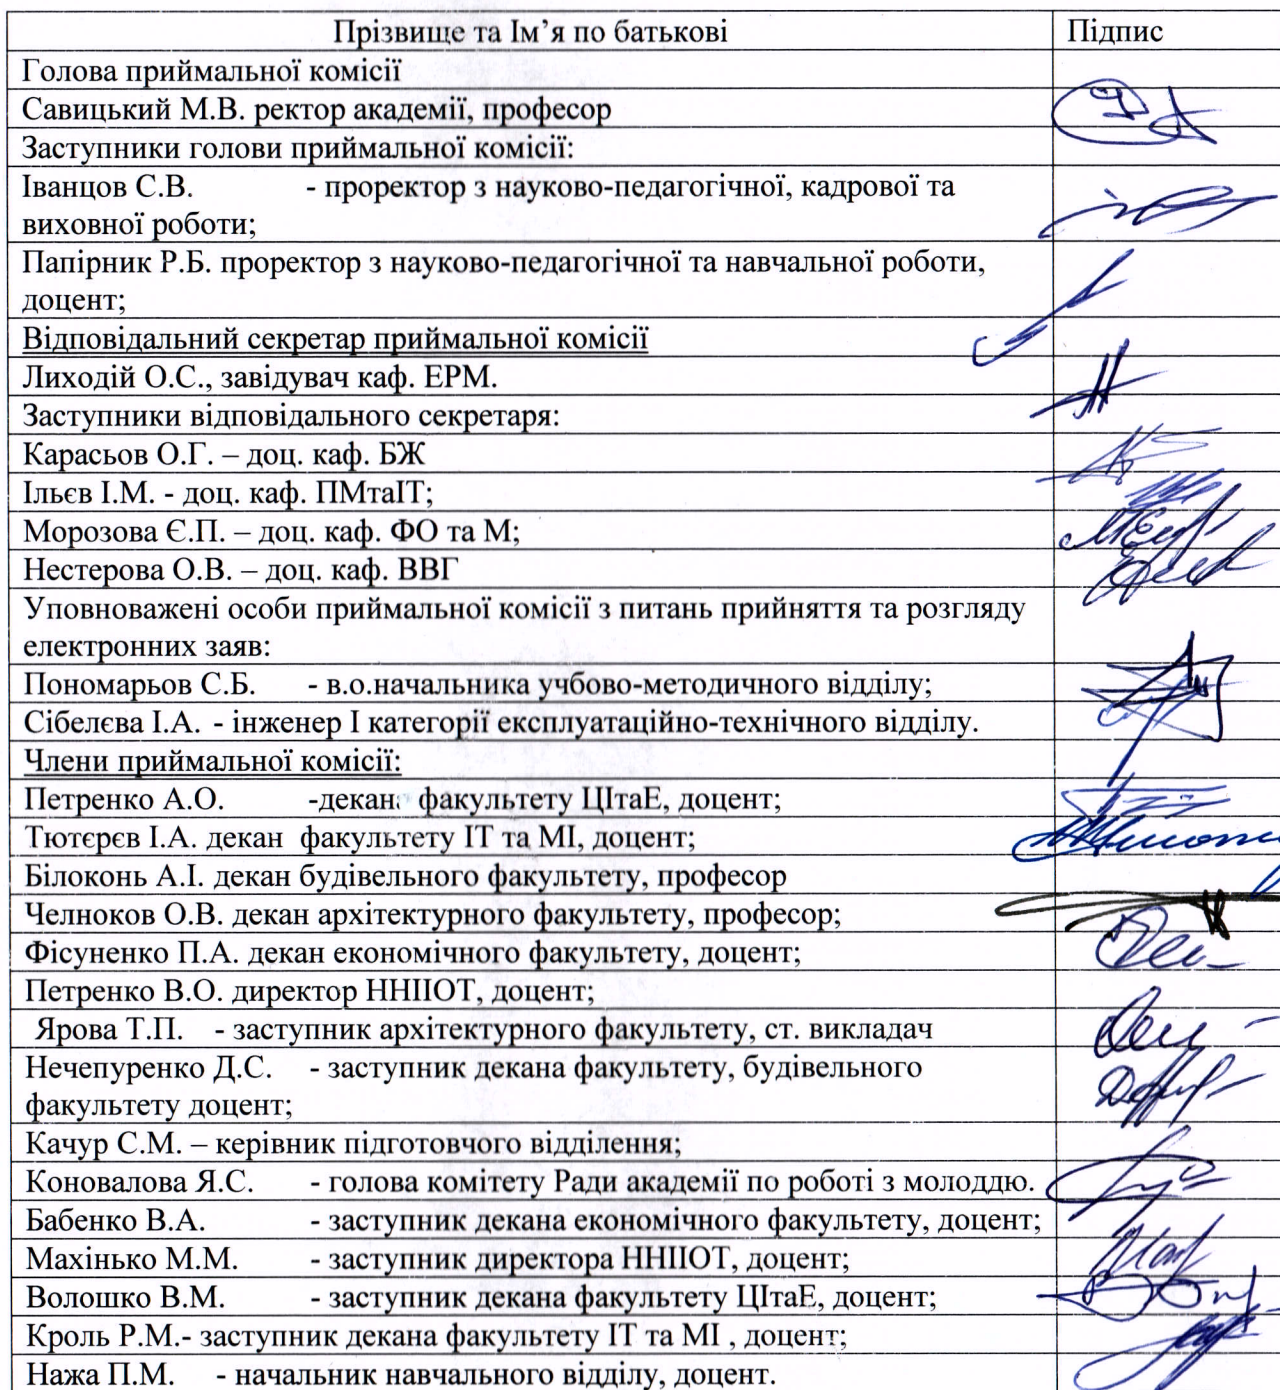 Прізвище та Ім’я по батькові Підпис
Голова приймальної комісії
Савицький М.В. ректор академії, професор
Заступники голови приймальної комісії:
Іванцов С.В. - проректор з науково-педагогічної, кадрової та
виховної роботи;
Папірник Р.Б. проректор з науково-педагогічної та навчальної роботи,
доцент;
Відповідальний секретар приймальної комісії
Лиходій О.С., завідувач каф. ЕРМ.
Заступники відповідального секретаря:
Карасьов О.Г. – доц. каф. БЖ
Ільєв І.М. - доц. каф. ПМтаІТ;
Морозова Є.П. – доц. каф. ФО та М;
Нестерова О.В. – доц. каф. ВВГ
Уповноважені особи приймальної комісії з питань прийняття та розгляду
електронних заяв:
Пономарьов С.Б. - в.о.начальника учбово-методичного відділу;
Сібелєва І.А. - інженер І категорії експлуатаційно-технічного відділу.
Члени приймальної комісії:
Петренко А.О. -декан факультету ЦІтаЕ, доцент;
Тютєрєв І.А. декан факультету ІТ та МІ, доцент;
Білоконь А.І. декан будівельного факультету, професор
Челноков О.В. декан архітектурного факультету, професор;
Фісуненко П.А. декан економічного факультету, доцент;
Петренко В.О. директор ННІІОТ, доцент;
Ярова Т.П. - заступник архітектурного факультету, ст. викладач
Нечепуренко Д.С. - заступник декана факультету, будівельного
факультету доцент;
Качур С.М. – керівник підготовчого відділення;
Коновалова Я.С. - голова комітету Ради академії по роботі з молоддю.
Бабенко В.А. - заступник декана економічного факультету, доцент;
Махінько М.М. - заступник директора ННІІОТ, доцент;
Волошко В.М. - заступник декана факультету ЦІтаЕ, доцент;
Кроль Р.М.- заступник декана факультету ІТ та МІ , доцент;
Нажа П.М. - начальник навчального відділу, доцент.